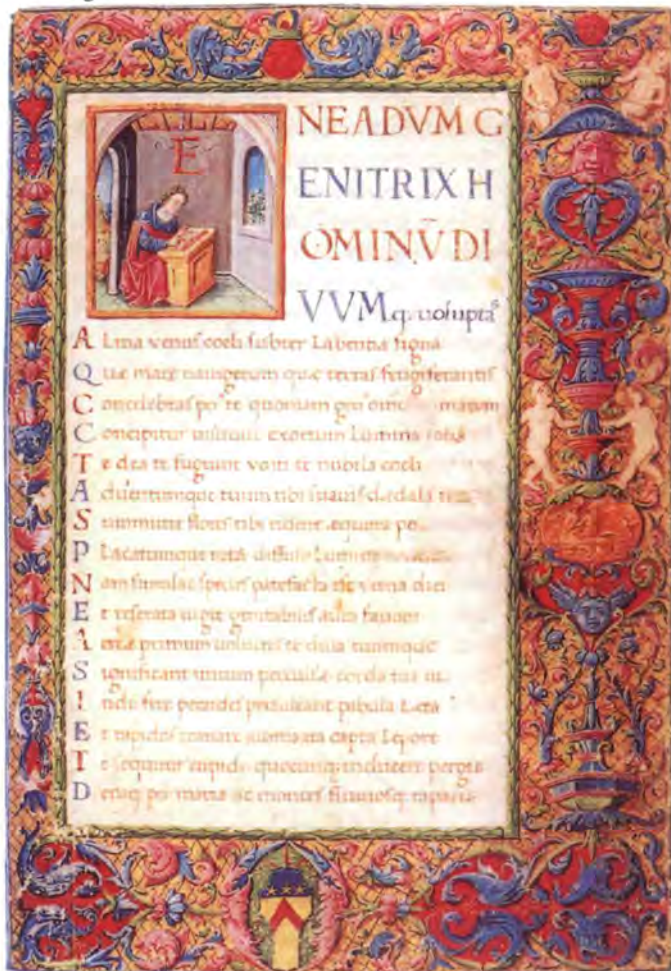 E
NEADVM G
ENITRIX H
OMINV̄ DI
VVM.q. uoluptaˢ
A Lma venus coeli subter Labentia signa
Q ue mare nauigerum quae terras frugiferantis
C oncelebras te quoniam
C oncipitur uisitque exortum Lumina solis
T e dea te fugiunt venti te nubila coeli
A duentumque tuum tibi suauis daedala
S ummittit flores tibi rident aequora
P Lacatumque nitet diffuso Lumine
N am simulac species patefacta est verna diei
E t reserata uiget genitabilis aura fauoni
A erie primum uolucres te diua tuumque
S ignificant initum perculse corda tua ui
I nde fere pecudes persultant pabula Laeta
E t rapidos tranant capta Lepore
T e sequitur cupide quocunq; inducere pergis
D eniq; per maria ac montes fluuiosq; rapacis